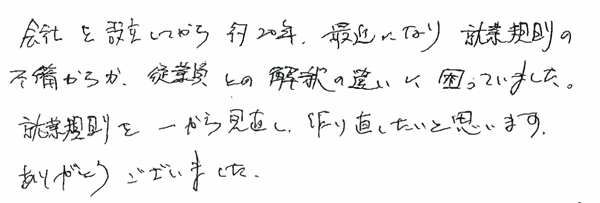 会社を設立してから約20年、最近になり就業規則の
不備からか、従業員との解釈の違いに困っていました。
就業規則を一から見直し、作り直したいと思います。
ありがとうございました。